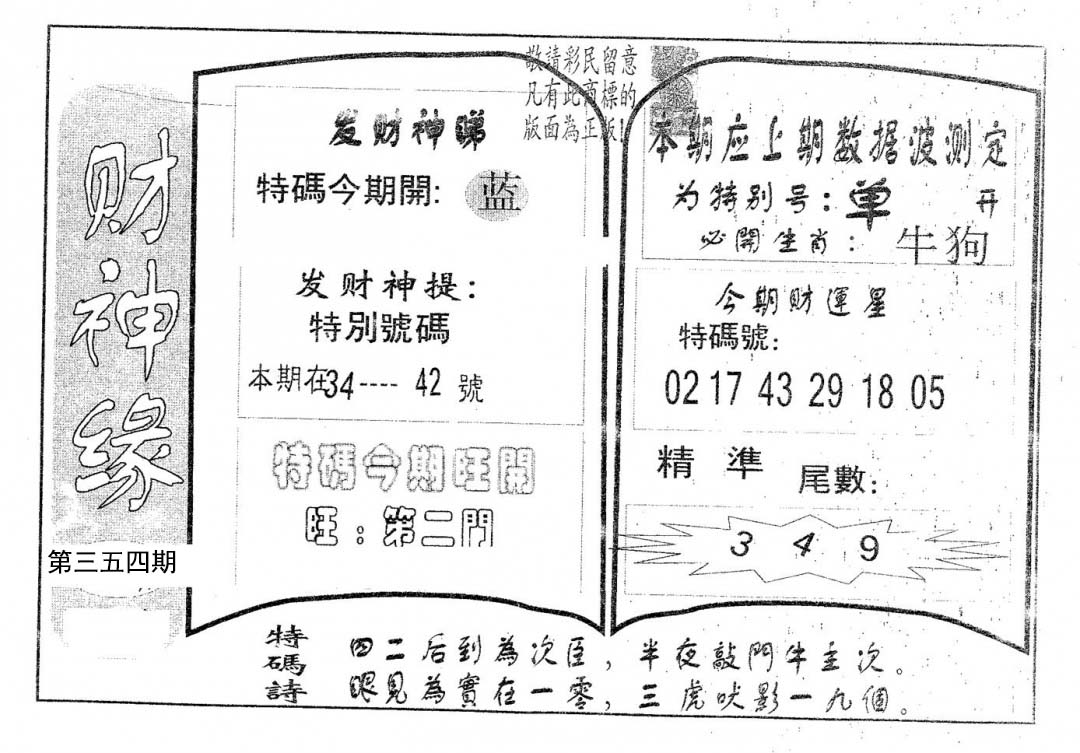 财神缘
第三五四期
敬請彩民留意
凡有此商標的
版面為正版!
发财神睇
特碼今期開: 蓝
发财神提:
特別號碼
本期在34----42 號
特碼今期旺開
旺:第二門
本期应上期数据波测定
为特别号:单 开
必開生肖: 牛狗
今期財運星
特碼號:
02 17 43 29 18 05
精準 尾數:
3 4 9
特碼詩
四二后到為次臣,半夜敲門牛主次。
眼見為實在一零,三虎吠影一九個。